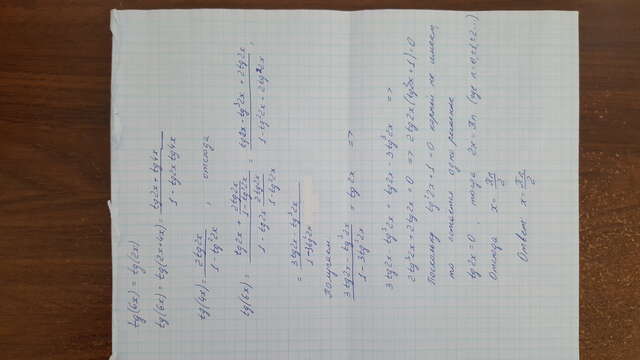 tg(6x) = tg(2x)
tg(6x) = tg(2x+4x) = (tg2x + tg4x)/(1 - tg2x tg4x)
tg(4x) = 2tg2x/(1 - tg²2x) , отсюда
tg(6x) = (tg2x + 2tg2x/(1 - tg²2x))/(1 - tg2x 2tg2x/(1 - tg²2x)) = (tg2x - tg³2x + 2tg2x)/(1 - tg²2x - 2tg²2x) =
= (3tg2x - tg³2x)/(1 - 3tg²2x)
Получаем
(3tg2x - tg³2x)/(1 - 3tg²2x) = tg2x =>
3tg2x - tg³2x = tg2x - 3tg³2x =>
2tg³2x + 2tg2x = 0 => 2tg2x(tg²2x + 1) = 0
Поскольку tg²2x + 1 = 0 корней не имеет,
то остается одно решение
tg2x = 0 , тогда 2x = πn (где n=0,±1,±2...)
Отсюда x = πn/2
Ответ x = πn/2